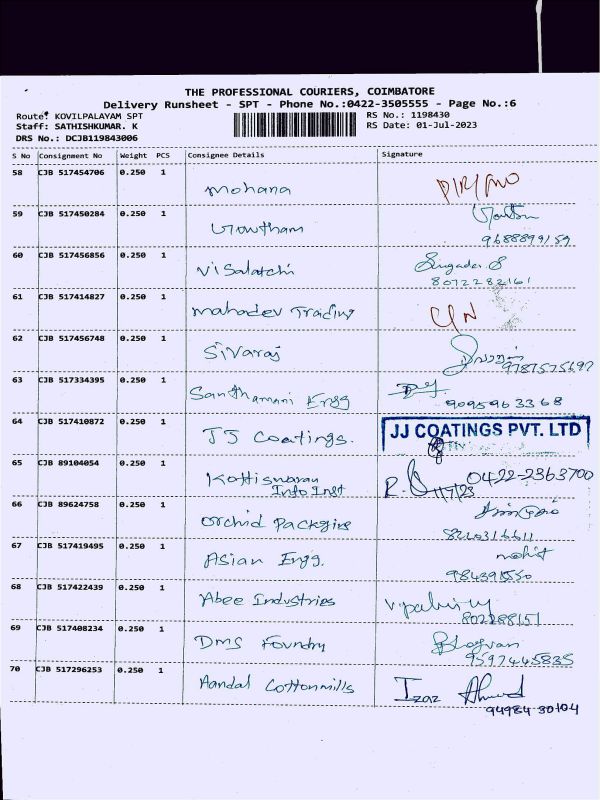 THE PROFESSIONAL COURIERS, COIMBATORE
Delivery Runsheet - SPT - Phone No.:0422-3505555 - Page No.:6
Route: KOVILPALAYAM SPT
RS No.: 1198430
Staff: SATHISHKUMAR. K
RS Date: 01-Jul-2023
DRS No.: DCJB119843006
S No Consignment No Weight PCS Consignee Details Signature
58 CJB 517454706 0.250 1 Mohana
59 CJB 517450284 0.250 1 Gowtham
9688899159
60 CJB 517456856 0.250 1 Visalatchi
8072282161
61 CJB 517414827 0.250 1 Mahadev Trading
62 CJB 517456748 0.250 1 Sivaraj
63 CJB 517334395 0.250 1 Santhamani Engg
9095963368
64 CJB 517410872 0.250 1 JJ Coatings. JJ COATINGS PVT. LTD
65 CJB 89104054 0.250 1 0422-2363700
Info Inst 1/7/23
66 CJB 89624758 0.250 1 Orchid
67 CJB 517419495 0.250 1 Asian Engg. mohit
68 CJB 517422439 0.250 1 Abee Industries
802288151
69 CJB 517408234 0.250 1 DMS Foundry
9597445835
70 CJB 517296253 0.250 1 Aandal Cottonmills Izaz Ahmed
94984 30104